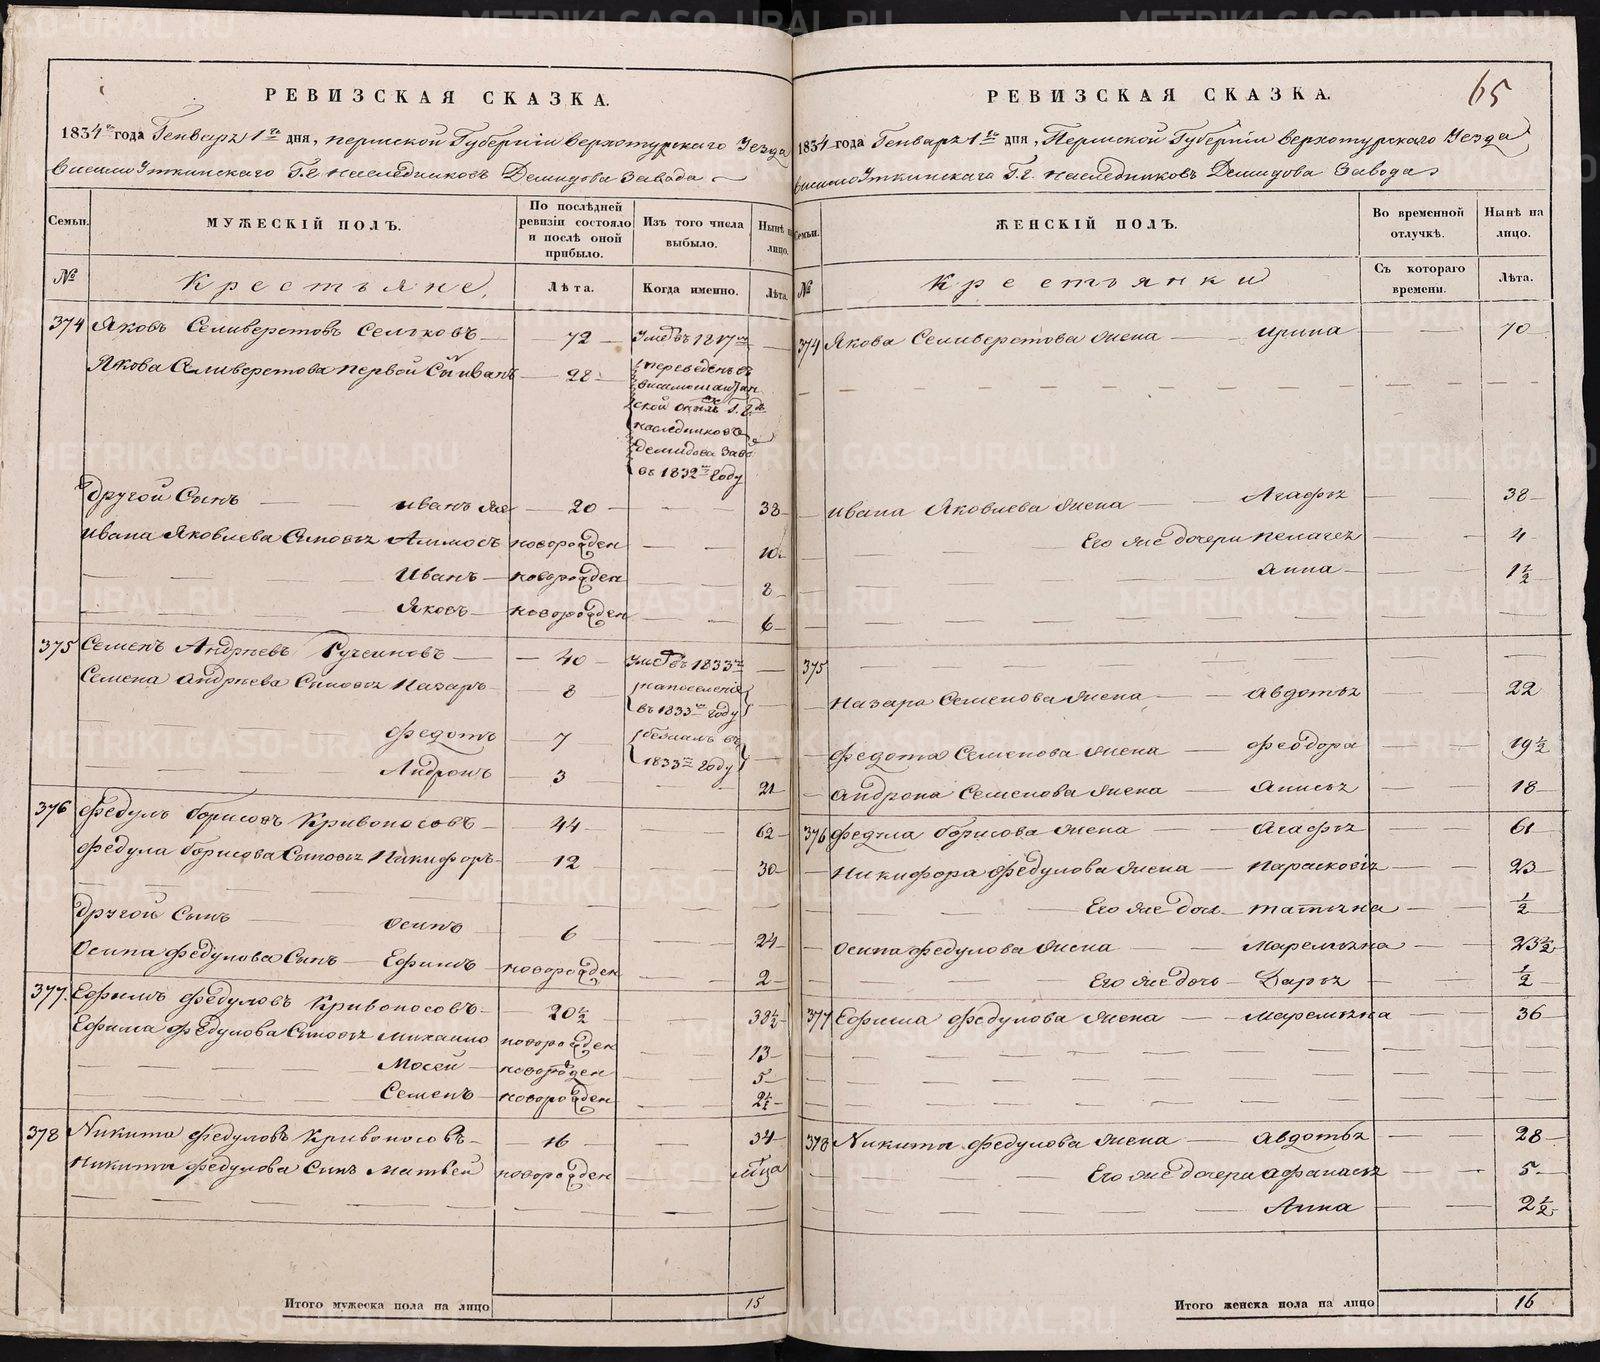 РЕВИЗСКАЯ СКАЗКА.
1834го года Генваря 1го дня, Пермской Губернiи Верхотурскаго Уезда
Висимо Уткинскаго Г.г. наследниковъ Демидова Завода
Семьи. МУЖЕСКIЙ ПОЛЪ. По послѣдней ревизiи состояло и послѣ оной прибыло. Изъ того числа выбыло. Нынѣ на лицо.
№ Крестьяне. Лѣта. Когда именно. Лѣта.
374 Яковъ Селиверстовъ 72 — —
Якова Селиверстова первой Сынъ Иванъ — 22 — переведенъ въ
Висимошайтан
наследниковъ
Демидова Заво
въ 1832м Году
Другой Сынъ — Иванъ же — 20 — — — 38
Ивана Яковлева Сыновья новорожден — — 10
— — — Иванъ — новорожден — — 8
— — — Яковъ — новорожден — — 6
375 Семенъ Андреевъ — 40 — Умеръ въ 1833м —
Семена Андреева Сыновья Назаръ — 8 на поселенiе
въ 1833м Году
Федотъ — 7 бежалъ въ
1833м Году
— — — Андронъ — 3 — — 21
376 Федулъ Борисовъ Кривоносовъ — 44 — — 62
Федула Борисова Сыновья Никифоръ — 12 — — 30
— — — — — —
Другой Сынъ — Осипъ 6 — — 24
Осипа Федулова Сынъ — Ефимъ — новорожден — — 2
377. Ефимъ Федуловъ Кривоносовъ — 20½ — — 38½
Ефима Федулова Сыновья Михаило новорожден — — 13
— — — Мосей — новорожден — — 5
— — — Семенъ — новорожден — — 2½
378 Никита Федуловъ Кривоносовъ — 16 — — 34
Никиты Федулова Сынъ Матвей новорожден — — мѣца
— — — — — —
Итого мужеска пола на лицо 15
65
РЕВИЗСКАЯ СКАЗКА.
1834 года Генваря 1го дня, Пермской Губернiи Верхотурскаго Уезда
Висимо Уткинскаго Г.г. наследниковъ Демидова Завода
Семьи. ЖЕНСКIЙ ПОЛЪ. Во временной отлучкѣ. Нынѣ на лицо.
№ Крестьянки Съ котораго времени. Лѣта.
374 Якова Селиверстова жена — Ирина — — 70
— — — — — —
Ивана Яковлева жена — Агафья — — 38
Его же дочери Пелагея — — 4
Анна — — 1½
— — — — — —
375 — — — — —
Назара Семенова жена — Авдотья — — 22
Федота Семенова жена — Феодора — — 19½
Андрона Семенова жена — Анисья — — 18
376 Федула Борисова жена — Агафья — — 61
Никифора Федулова жена — Парасковья — — 23
Его же дочь — Татьяна — — ½
Осипа Федулова жена — Маремьяна — — 23½
Его же дочь — Дарья — — ½
377 Ефима Федулова жена — Маремьяна — — 36
— — — — — —
— — — — — —
— — — — — —
378 Никиты Федулова жена — Авдотья — — 28
Его же дочери Афанасья — — 5
— — — Анна — — 2½
Итого женска пола на лицо 16
METRIKI.GASO-URAL.RU